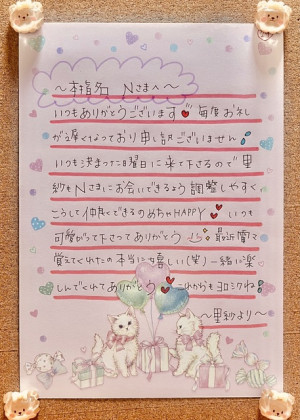 〜本指名 Nさまへ〜
いつもありがとうございます 毎度お礼
が遅くなっており申し訳ございません
いつも決まった曜日に来て下さるので里
紗もNさまにお会いできるよう調整しやすく、
こうして仲良くできるのめちゃHAPPY いつも
可愛がって下さってありがとう 最近電マ
覚えてくれたの本当に嬉しい(笑)一緒に楽
しんでくれてありがとう これからもヨロシクね
〜里紗より〜